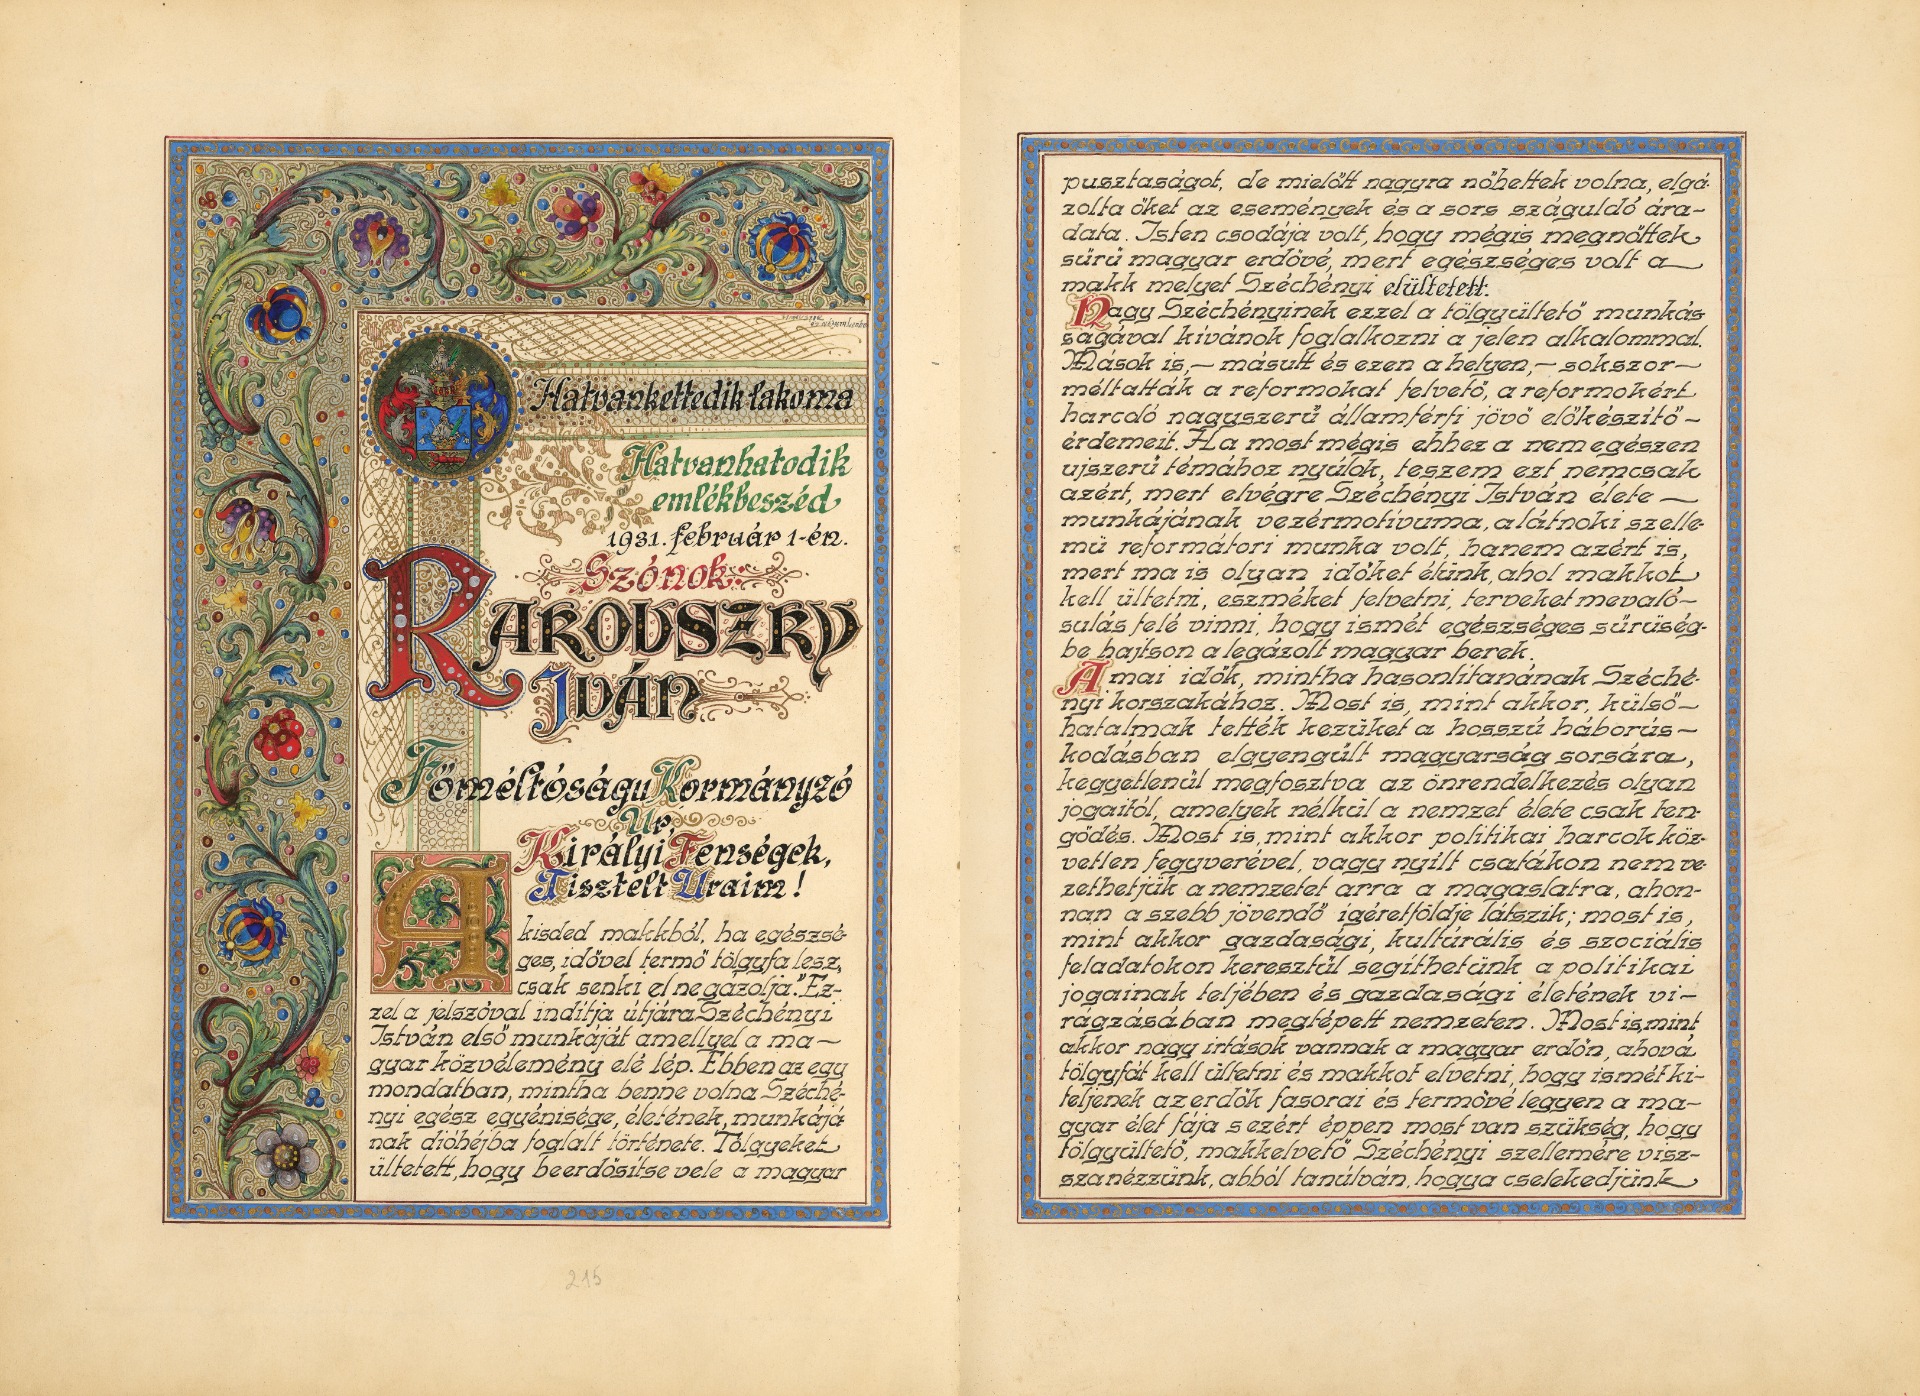 Hatvankettedik lakoma
Hatvanhatodik
emlékbeszéd
1931. február 1-én.
Szónok:
RAKOVSZKY
IVÁN
Főméltóságu Kormányzó
Ur,
Királyi Fenségek,
Tisztelt Uraim!
A kisded makkból, ha egészsé-
ges, idővel termő tölgyfa lesz,
csak senki el ne gázolja." Ez-
zel a jelszóval indítja útjára Széchényi
István első munkáját amellyel a ma-
gyar közvélemény elé lép. Ebben az egy
mondatban, mintha benne volna Széché-
nyi egész egyénisége, életének, munkájá
nak dióhéjba foglalt története. Tölgyeket
ültetett, hogy beerdősítse vele a magyar
215
pusztaságot, de mielőtt nagyra nőhettek volna, elgá-
zolta őket az események és a sors száguldó ára-
data. Isten csodája volt, hogy mégis megnőttek
sűrű magyar erdővé, mert egészséges volt a
makk melyet Széchényi elültetett.
Nagy Széchényinek ezzel a tölgyültető munkás
ságával kívánok foglalkozni a jelen alkalommal.
Mások is, - másutt és ezen a helyen, - sokszor -
méltatták a reformokat felvető, a reformokért
harcoló nagyszerű államférfi jövő előkészítő -
érdemeit. Ha most mégis ehhez a nem egészen
ujszerű témához nyúlok, teszem ezt nemcsak
azért, mert elvégre Széchényi István élete -
munkájának vezérmotívuma, a látnoki szelle-
mü reformátori munka volt, hanem azért is,
mert ma is olyan időket élünk, ahol makkot
kell ültetni, eszméket felvetni, terveket mevaló-
sulás felé vinni, hogy ismét egészséges sűrüség-
be hajtson a legázolt magyar berek.
A mai idők, mintha hasonlítanának Széché-
nyi korszakához. Most is, mint akkor, külső -
hatalmak tették kezüket a hosszú háborús -
kodásban elgyengült magyarság sorsára,
kegyetlenül megfosztva az önrendelkezés olyan
jogaitól, amelyek nélkül a nemzet élete csak ten-
gődés. Most is, mint akkor politikai harcok köz-
vetlen fegyverével, vagy nyílt csatákon nem ve-
zethetjük a nemzetet arra a magaslatra, ahon-
nan a szebb jövendő igéretföldje látszik; most is,
mint akkor gazdasági, kultúrális és szociális
feladatokon keresztül segíthetünk a politikai
jogainak teljében és gazdasági életének vi-
rágzásában megtépett nemzeten. Most is, mint
akkor nagy irtások vannak a magyar erdőn, ahová
tölgyfát kell ültetni és makkot elvetni, hogy ismét ki-
teljenek az erdők fasorai és termővé legyen a ma-
gyar élet fája s ezért éppen most van szükség, hogy
tölgyültető, makkelvető Széchényi szellemére visz-
szanézzünk, abból tanúlván, hogya cselekedjünk